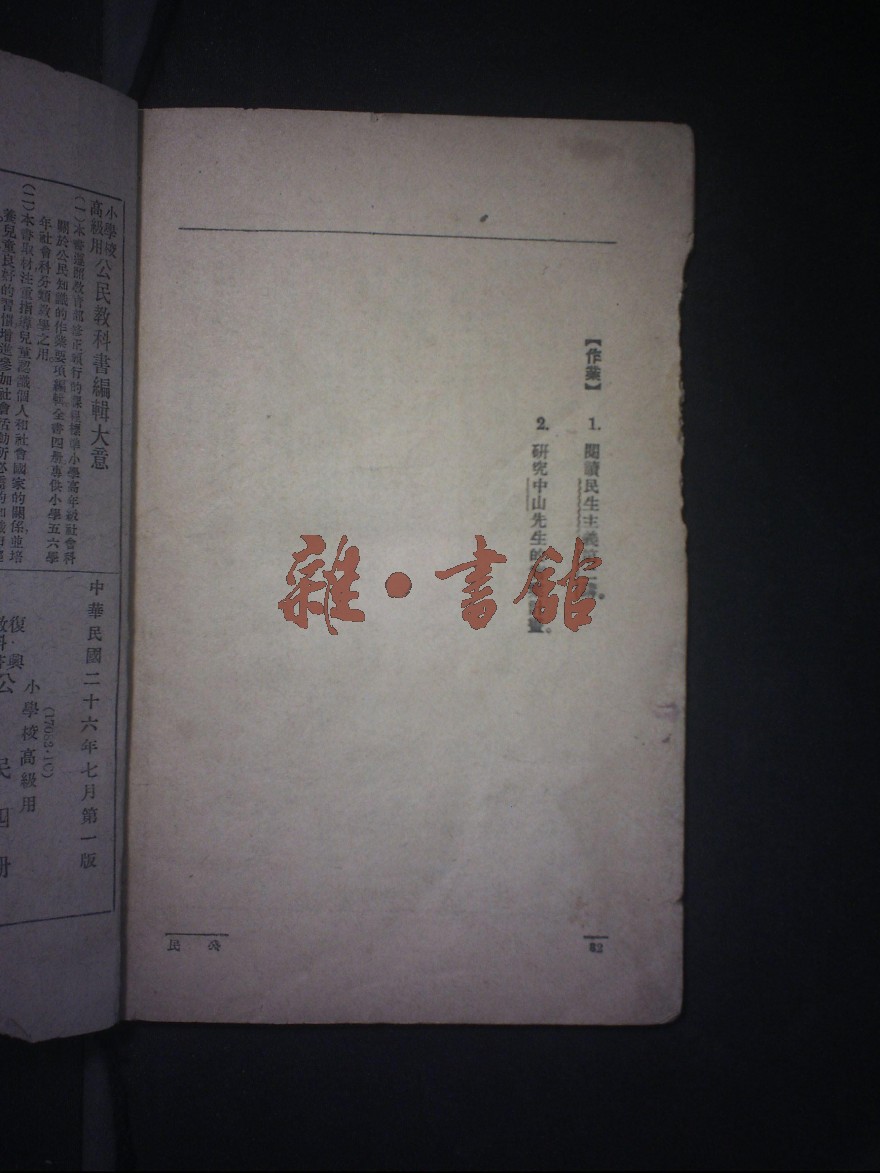 【作業】 1. 閱讀民生主義第二講。
2. 研究中山先生的
公民
82
雜·書館
小學校高級用公民教科書編輯大意
(一)本書遵照教育部修正頒行的課程標準小學高年級社會科
關於公民知識的作業要項編輯全書四册專供小學五六學
年社會科分類教學之用
(二)本書取材注重指導兒童認識個人和社會國家的關係並培
養兒童良好的習慣增進參加社會活動所必需的知識
中華民國二十六年七月第一版
小學校高級用
復興
教科書
公民四册